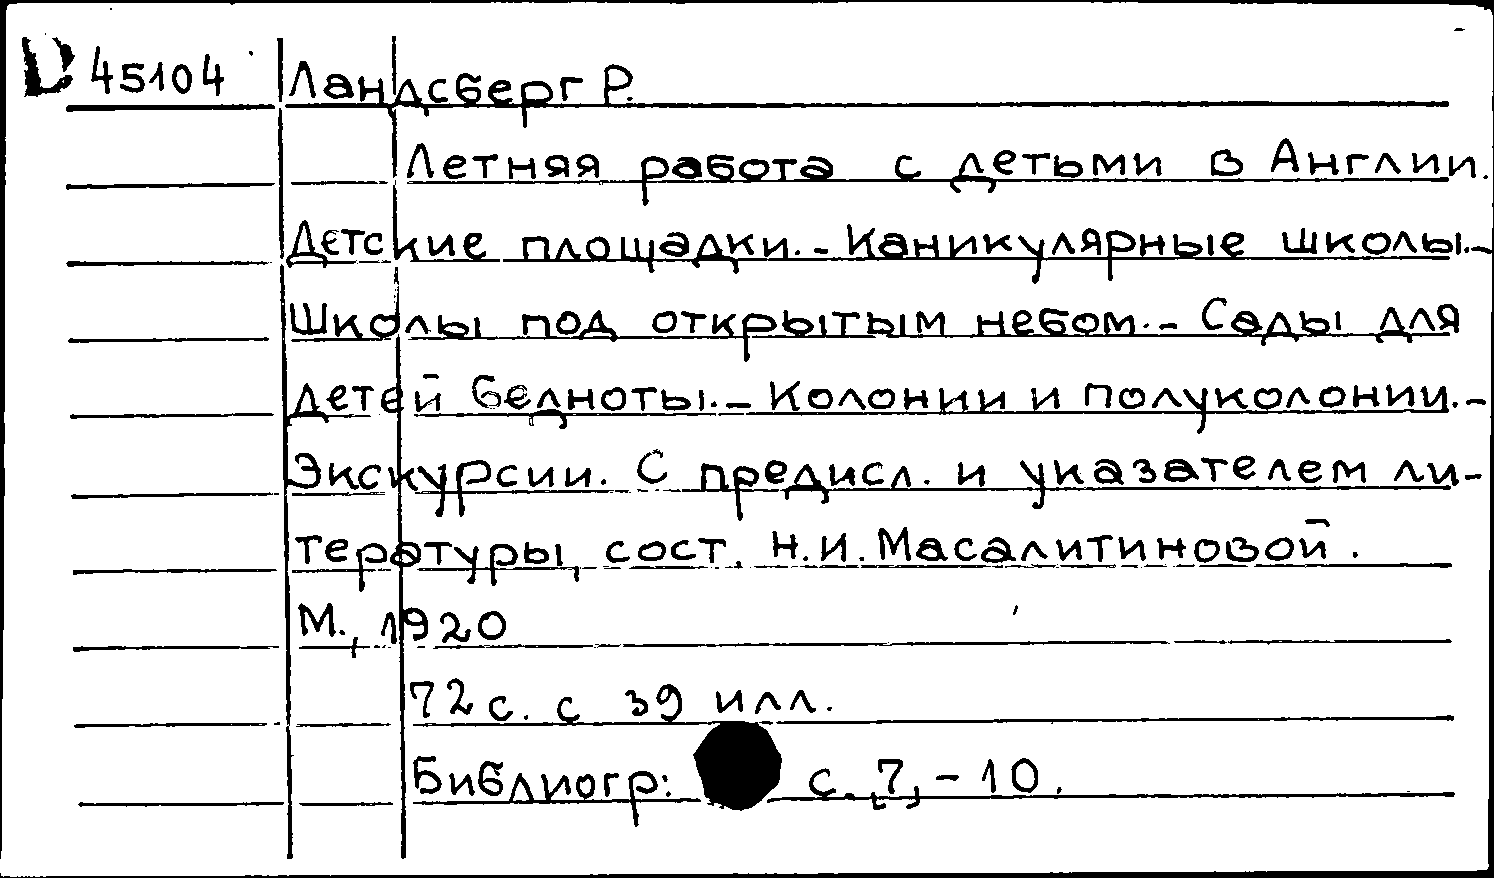 D 45104 Ландсберг Р.
Летняя работа с детьми в Англии.
Детские площадки.- Каникулярные школы.-
Школы под открытым небом.- Сады для
детей бедноты.- Колонии и полуколонии.-
Экскурсии. С предисл. и указателем ли-
тературы, сост. Н.И. Масалитиновой.
М., 1920
72 с. с 39 илл.
Библиогр: с. 7, -10.